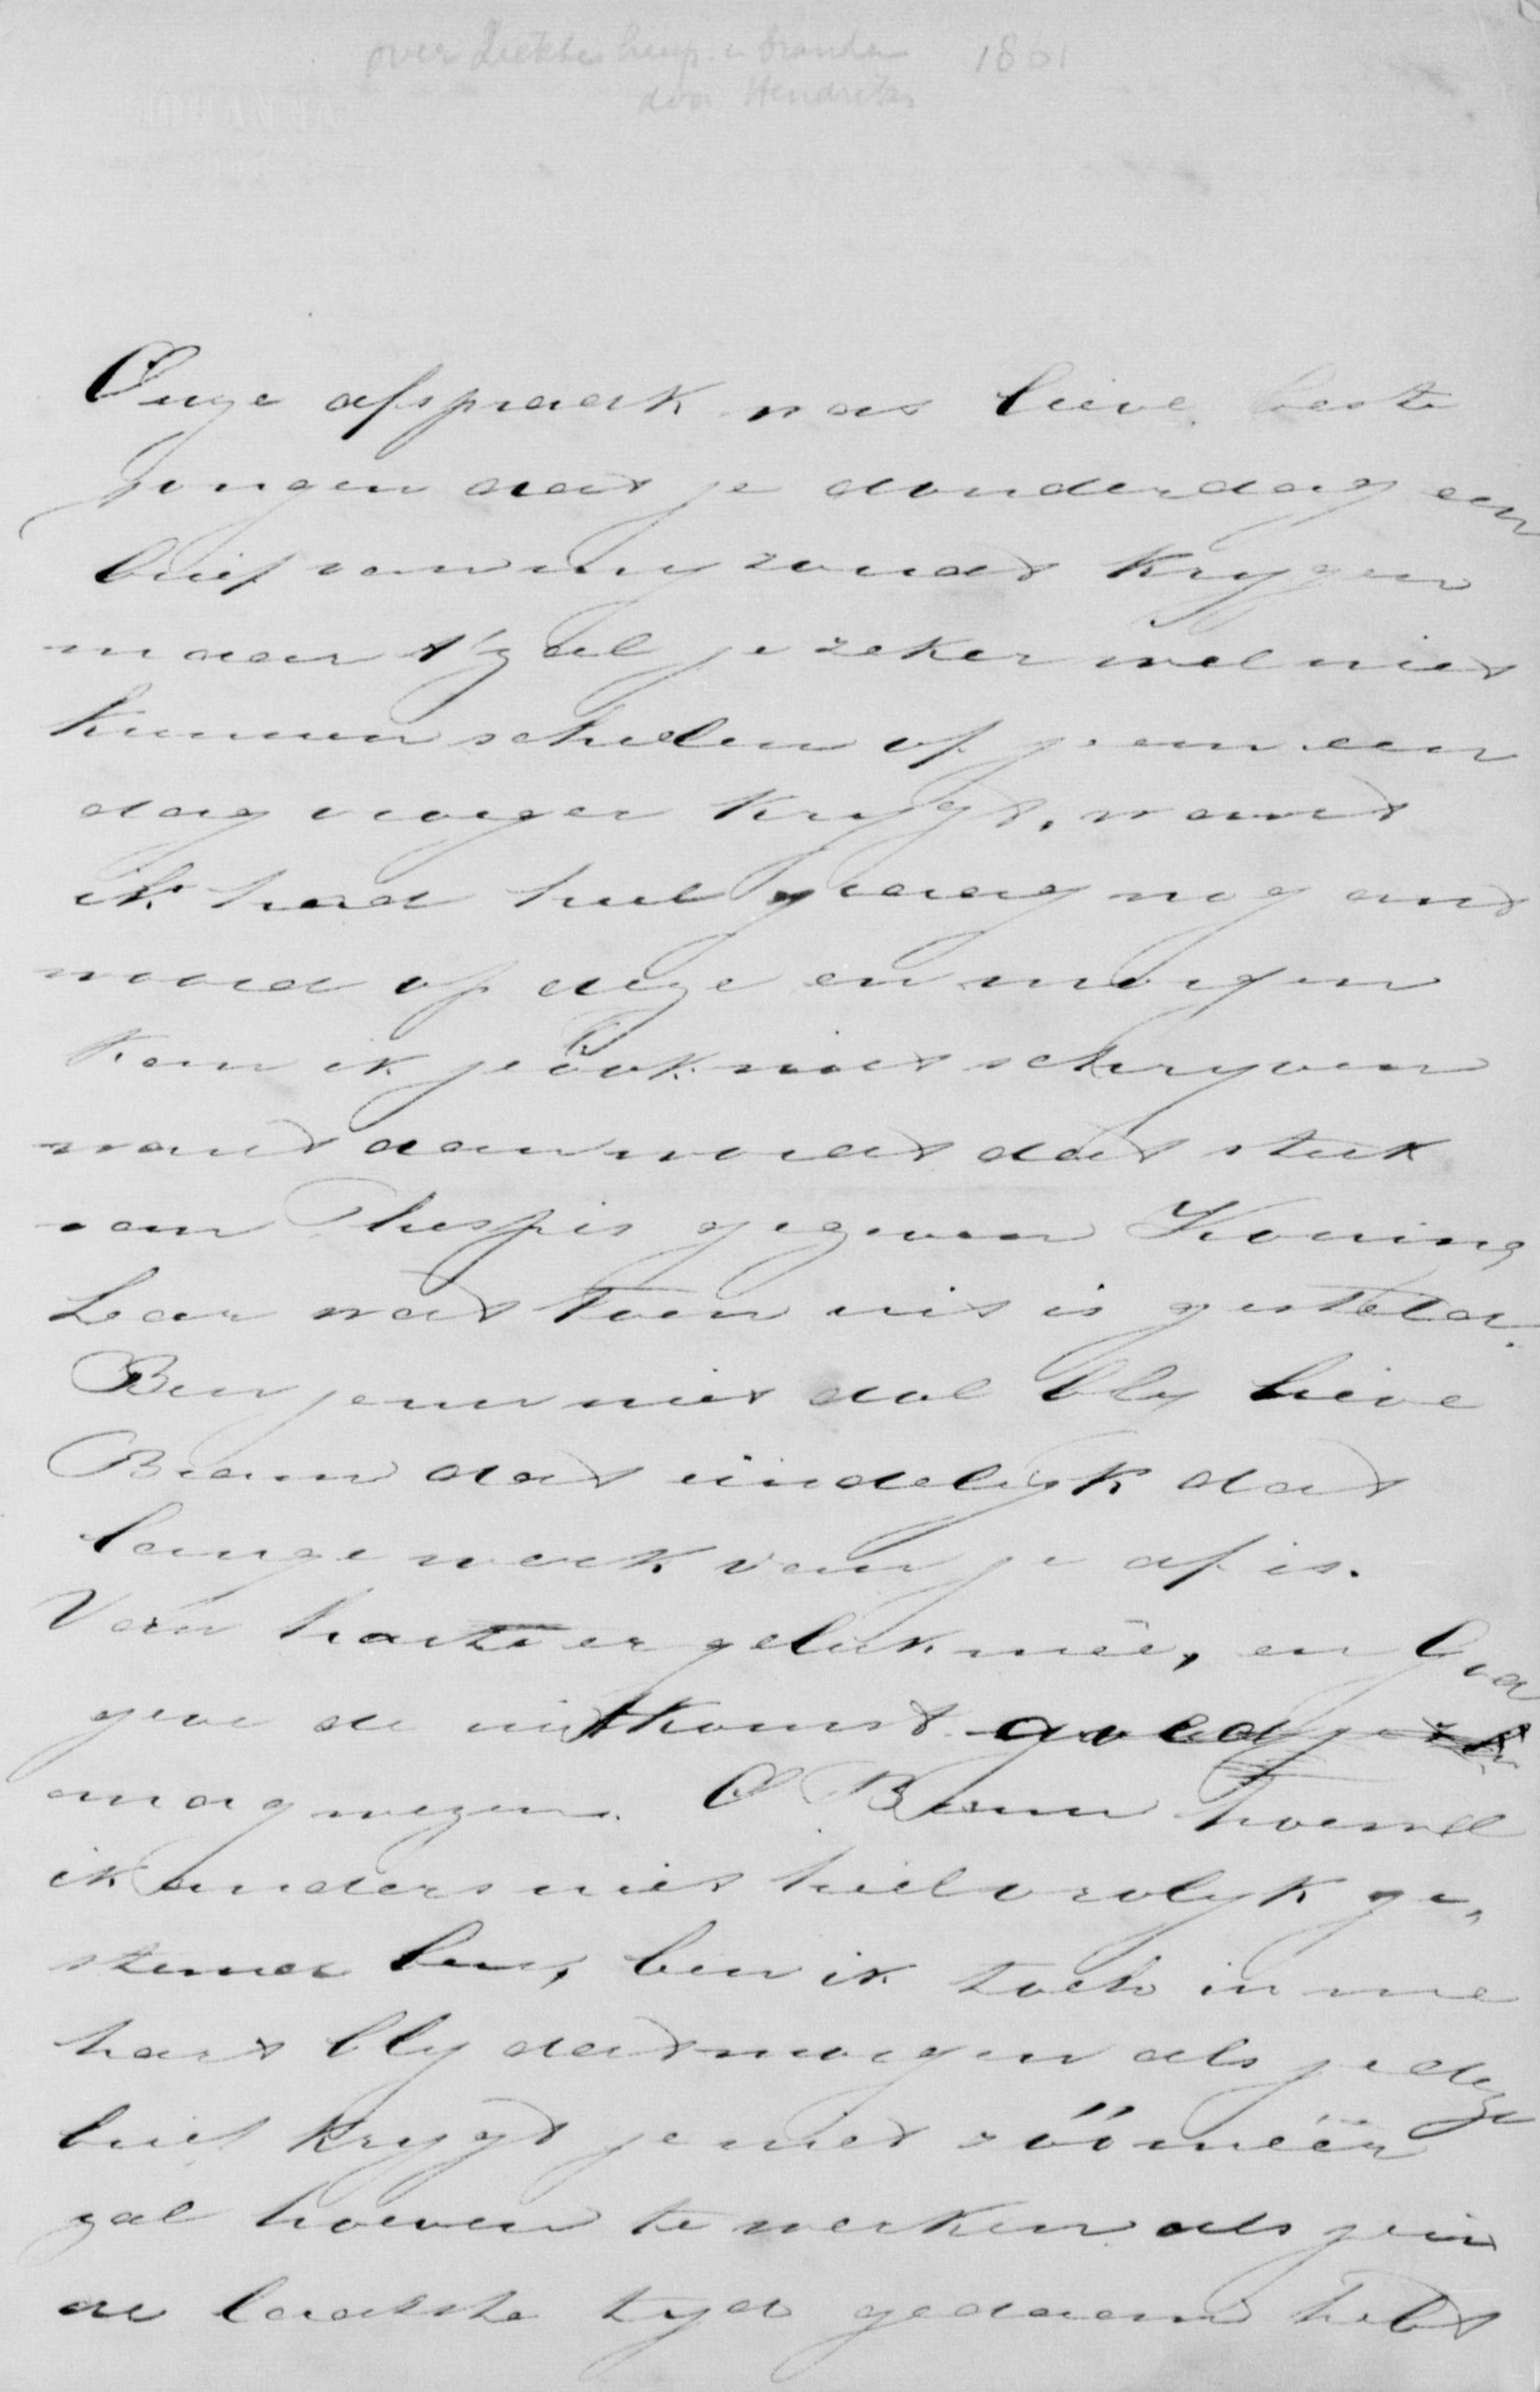 over Ziekte heup 1861
door Hendriks
Onze afspraak was lieve beste
jongen dat je donderdag een
brief van my zoudt krygen
maar 't zal je zeker wel niet
kunnen schelen of je em een
dag vroeger krygt, want
ik had heel graag nog ant
woord op deze en morgen
kan ik je óók niet schryven
want dan wordt dat stuk
van Thespis gegeven Koning
Lear wat toen uit is gesteld.
Ben je nu niet dol bly lieve
Bram dat eindelyk dat
lange werk van je af is.
Van harte er geluk meê, en God
geve de uitkomst goed
mag wezen. O Bram hoewel
ik anders niet heel vrolyk ge,
stemd ben, ben ik toch in me
hart bly dat morgen als je deze
brief krygt je niet zóó méér
zal hoeven te werken als je in
de laatste tyd gedaan hebt